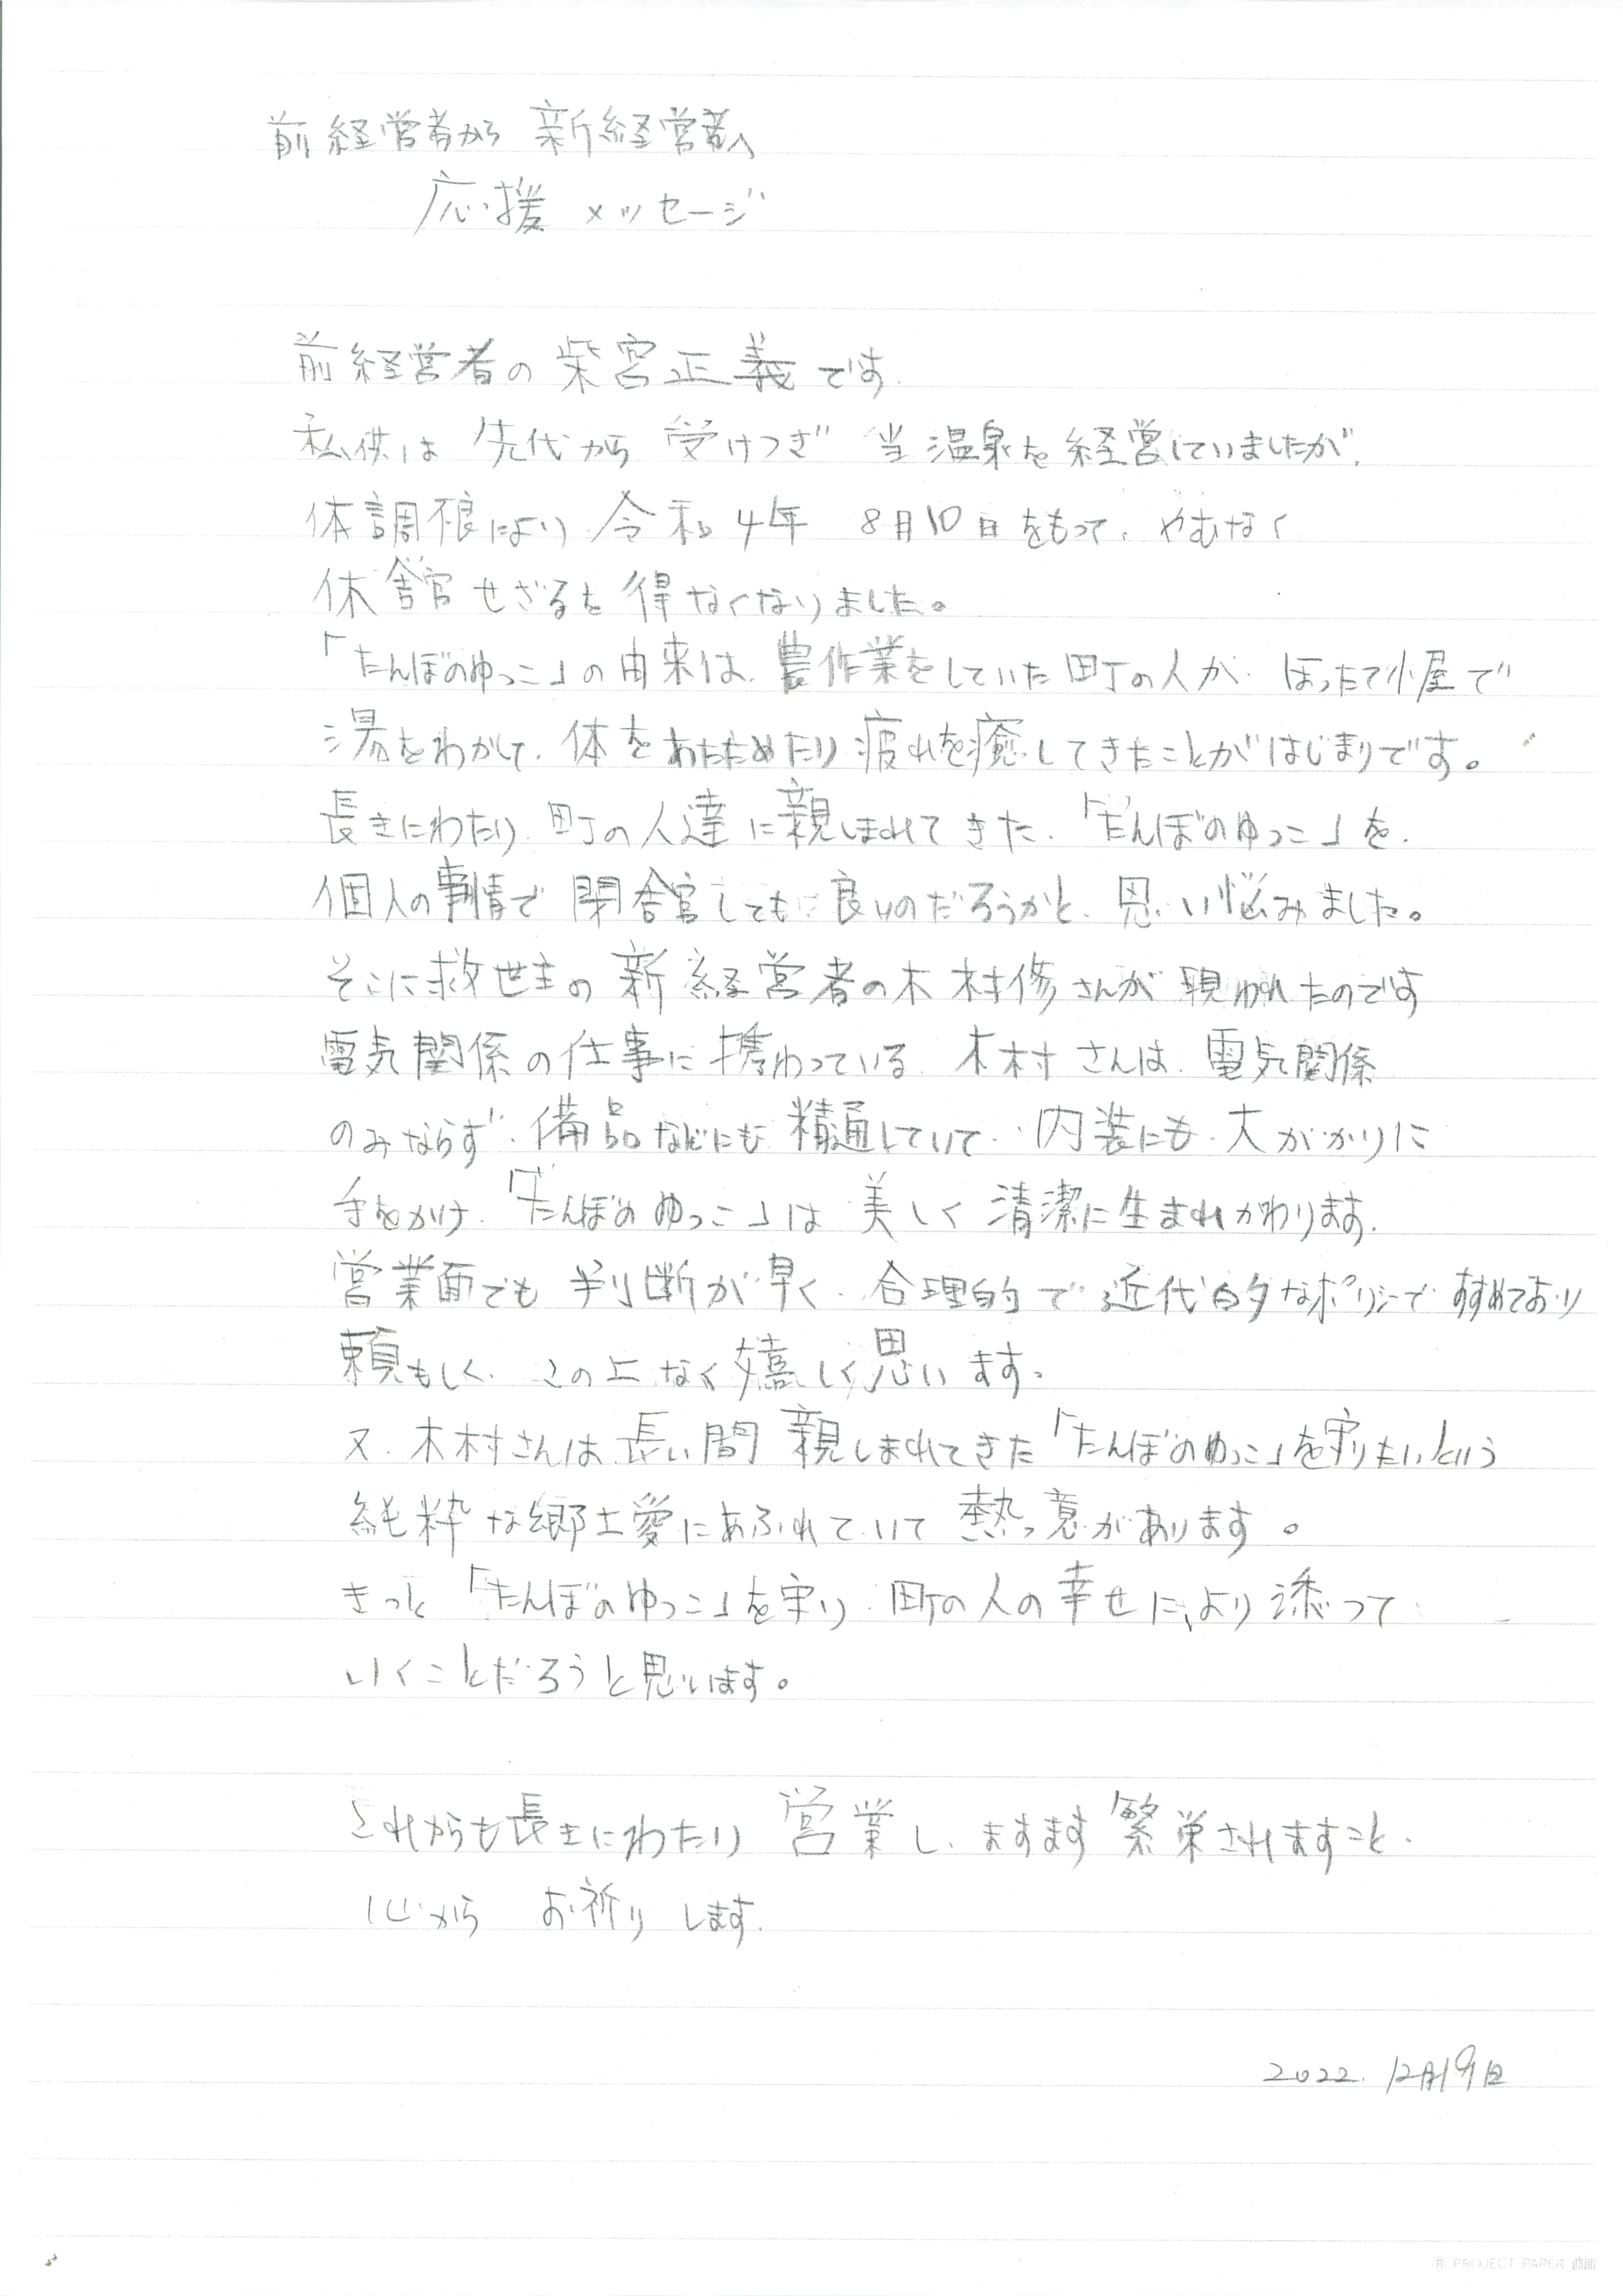 前経営者から 新経営者へ
応援 メッセージ
前経営者の柴宮正義です
私供は 先代から 受けつぎ 当温泉を経営していましたが、
体調不良により 令和4年 8月10日をもって、やむなく
休館せざるを得なくなりました。
「たんぼのゆっこ」の由来は、農作業をしていた町の人が、ほったて小屋で
湯をわかして、体をあたためたり疲れを癒してきたことがはじまりです。
長きにわたり、町の人達に親しまれてきた、「たんぼのゆっこ」を、
個人の事情で 閉館しても 良いのだろうかと、思い悩みました。
そこに救世主の 新経営者の木村修さんが 現われたのです
電気関係の仕事に携わっている、木村さんは、電気関係
のみならず、備品などにも 精通していて、内装にも、大がかりに
手をかけ、「たんぼのゆっこ」は 美しく 清潔に生まれかわります。
営業面でも 判断が早く、合理的で近代的なポリシーですすめており
頼もしく、この上なく嬉しく思います。
又、木村さんは長い間 親しまれてきた「たんぼのゆっこ」を守りたいという
純粋な郷土愛にあふれていて 熱意があります。
きっと「たんぼのゆっこ」を守り、町の人の幸せに、より添って
いくことだろうと思います。
これからも長きにわたり 営業し、ますます繁栄されますこと、
心から お祈りします。
2022. 12月19日
PROJECT PAPER